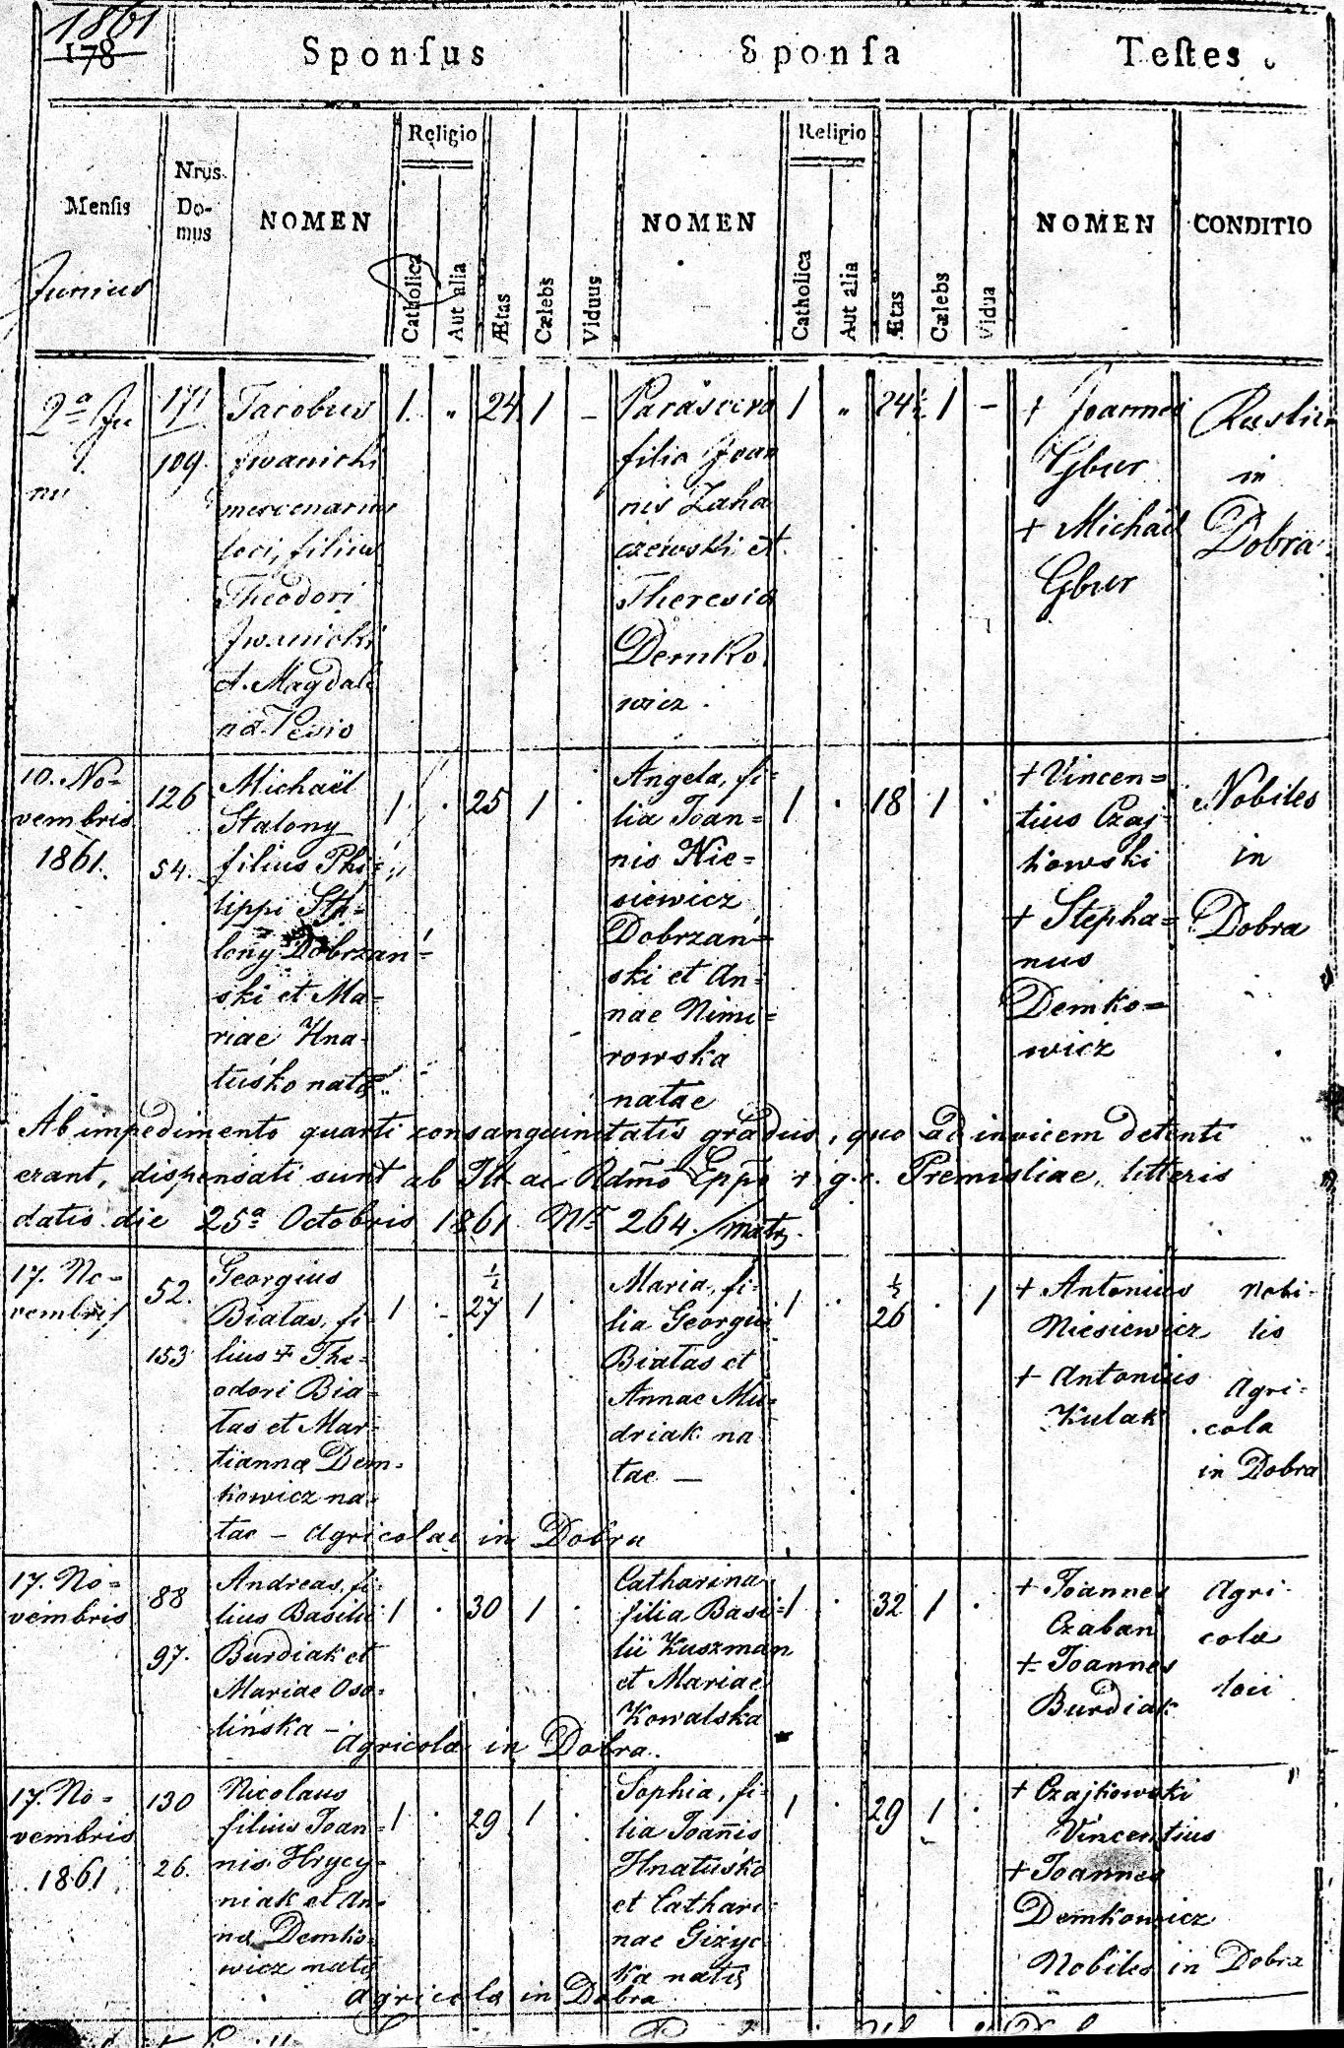 1861
178
Sponſus
Sponſa
Teſtes
Menſis
Nrus Do-
mus
NOMEN
Religio
Catholica
Aut alia
Ætas
Cælebs
Viduus
NOMEN
Religio
Catholica
Aut alia
Ætas
Cælebs
Vidua
NOMEN
CONDITIO
Junius
2a Ju
ni
171
109.
Jacobus
Iwanicki
mercenarius
loci, filius
Theodori
Iwanicki
et Magdale
na
1 " 24 1 -
filia Joan
nis Zaha
czewski et
Theresia
Demko
wicz.
1 " 24½ 1 -
+ Joannes
Gbur
+ Michaël
Gbur
in
Dobra
10. No=
vembris
1861.
126
54.
Michaël
Stalony
filius Phi=
lippi Sta=
lony Dobrzań=
ski et Ma=
riae Hna=
tuśko natae
1 . 25 1 .
Angela, fi=
lia Joan=
nis Nie=
siewicz
Dobrzań=
ski et An=
nae Nimi=
rowska
natae
1 . 18 1 .
+ Vincen=
tius Czaj=
kowski
+ Stepha=
nus
Demko=
wicz
Nobiles
in
Dobra
Ab impedimento quarti consanguinitatis gradus, quo ad invicem detenti
erant, dispensati sunt ab Ill. ac Rdmo Eppo r. g. c. Premisliae, litteris
datis die 25a Octobris 1861 Nr 264./
17. No=
vembris
52.
153
Georgius
Białas, fi=
lius + The=
odori Bia=
łas et Mar=
tianna Dem=
kowicz na=
tae – Agricolae in Dobra
1 . 27½ 1 .
Maria, fi=
lia Georgii
Białas et
Annae Mu=
driak na
tae —
1 .. 26½ . 1
+ Antonius
Niesiewicz
+ Antonius
Kulak
Nobi=
lis
Agri=
cola
in Dobra
17. No=
vembris
88
97.
Andreas, fi=
lius Basilii
Burdiak et
Mariae Oso=
lińska –
1 . 30 1 .
Catharina
filia Basi=
lii Kuszman
et Mariae
Kowalska
1 . 32 1 .
+ Joannes
Czaban
+ Joannes
Burdiak
Agri=
cola
loci
Agricola in Dobra.
17. No=
vembris
1861
130
26.
Nicolaus
filius Joan=
nis Hrycy=
niak et An=
na Demko=
wicz natae
1 . 29 1 .
Sophia, fi=
lia Joannis
Hnatuśko
et Cathari=
nae Giżyc=
ka natae
1 . 29 1 .
+ Czajkowski
Vincentius
+ Joannes
Demkowicz
Nobiles in Dobra
Agricola in Dobra